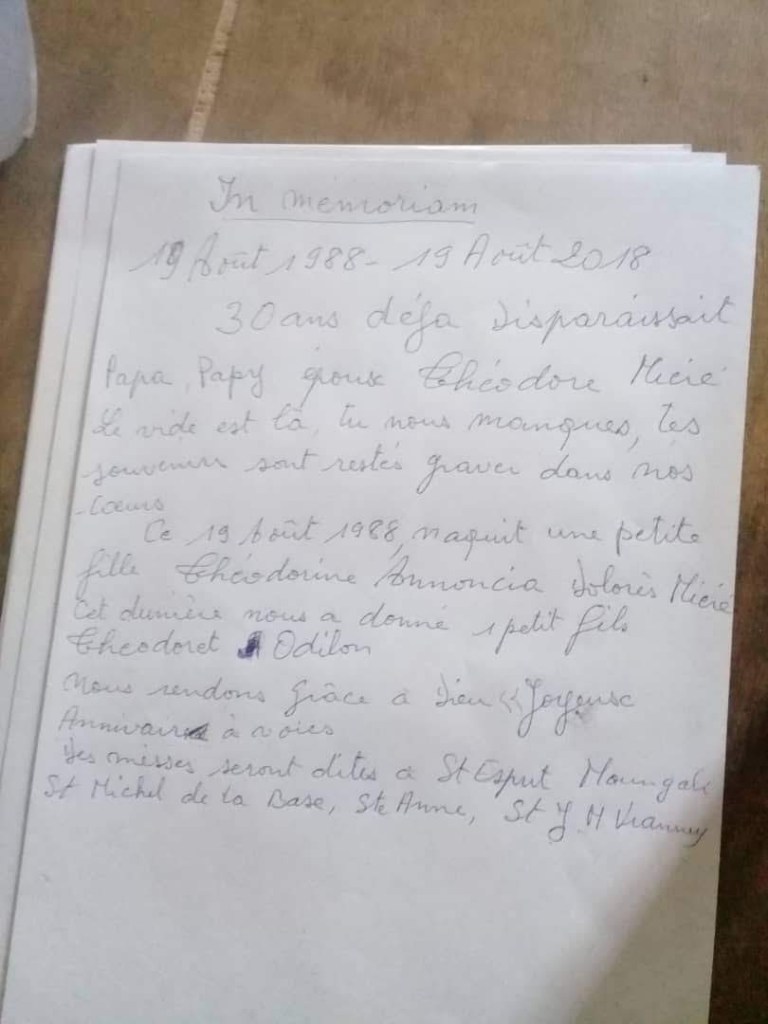 In memoriam
19 Août 1988 - 19 Août 2018
30 ans déja disparaissait
Papa, Papy époux Théodore Miéré
Le vide est là, tu nous manques, tes
souvenirs sont restés graver dans nos
coeurs
Ce 19 Août 1988, naquit une petite
fille Théodorine Annoncia Dolorès Miéré
Cet dernière nous a donné 1 petit fils
Théodoret Odilon
Nous rendons Grâce à Dieu << Joyeuse
Annivaire à
Des messes seront dites à St Esprit Moungali
St Michel de la Base, Ste Anne, St J M Vianney